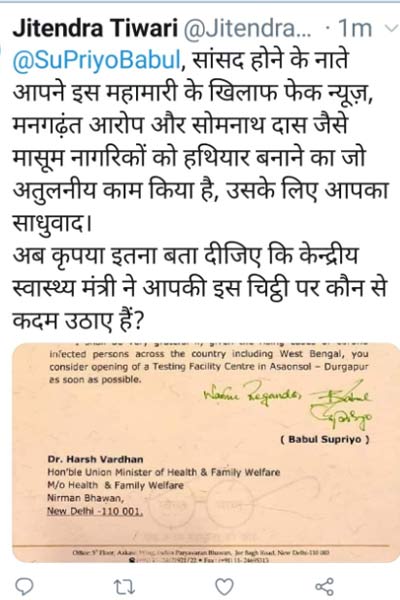 Jitendra Tiwari @Jitendra... · 1m
@SuPriyoBabul, सांसद होने के नाते
आपने इस महामारी के खिलाफ फेक न्यूज़,
मनगढ़ंत आरोप और सोमनाथ दास जैसे
मासूम नागरिकों को हथियार बनाने का जो
अतुलनीय काम किया है, उसके लिए आपका
साधुवाद।
अब कृपया इतना बता दीजिए कि केन्द्रीय
स्वास्थ्य मंत्री ने आपकी इस चिट्ठी पर कौन से
कदम उठाए हैं?
infected persons across the country including West Bengal, you
consider opening of a Testing Facility Centre in Asaonsol – Durgapur
as soon as possible.
Warm Regards,
Babul
Supriyo
( Babul Supriyo )
Dr. Harsh Vardhan
Hon'ble Union Minister of Health & Family Welfare
M/o Health & Family Welfare
Nirman Bhawan,
New Delhi -110 001.
Paryavaran Bhawan, Jor Bagh Road, New Delhi-110 003